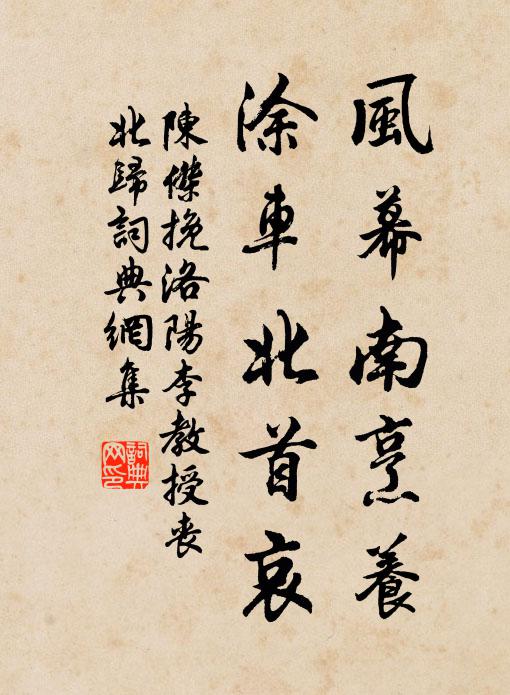 風幕南烹養
涂車北首哀
陳傑挽洛陽李教授喪
北歸詞典網集
詞典網印